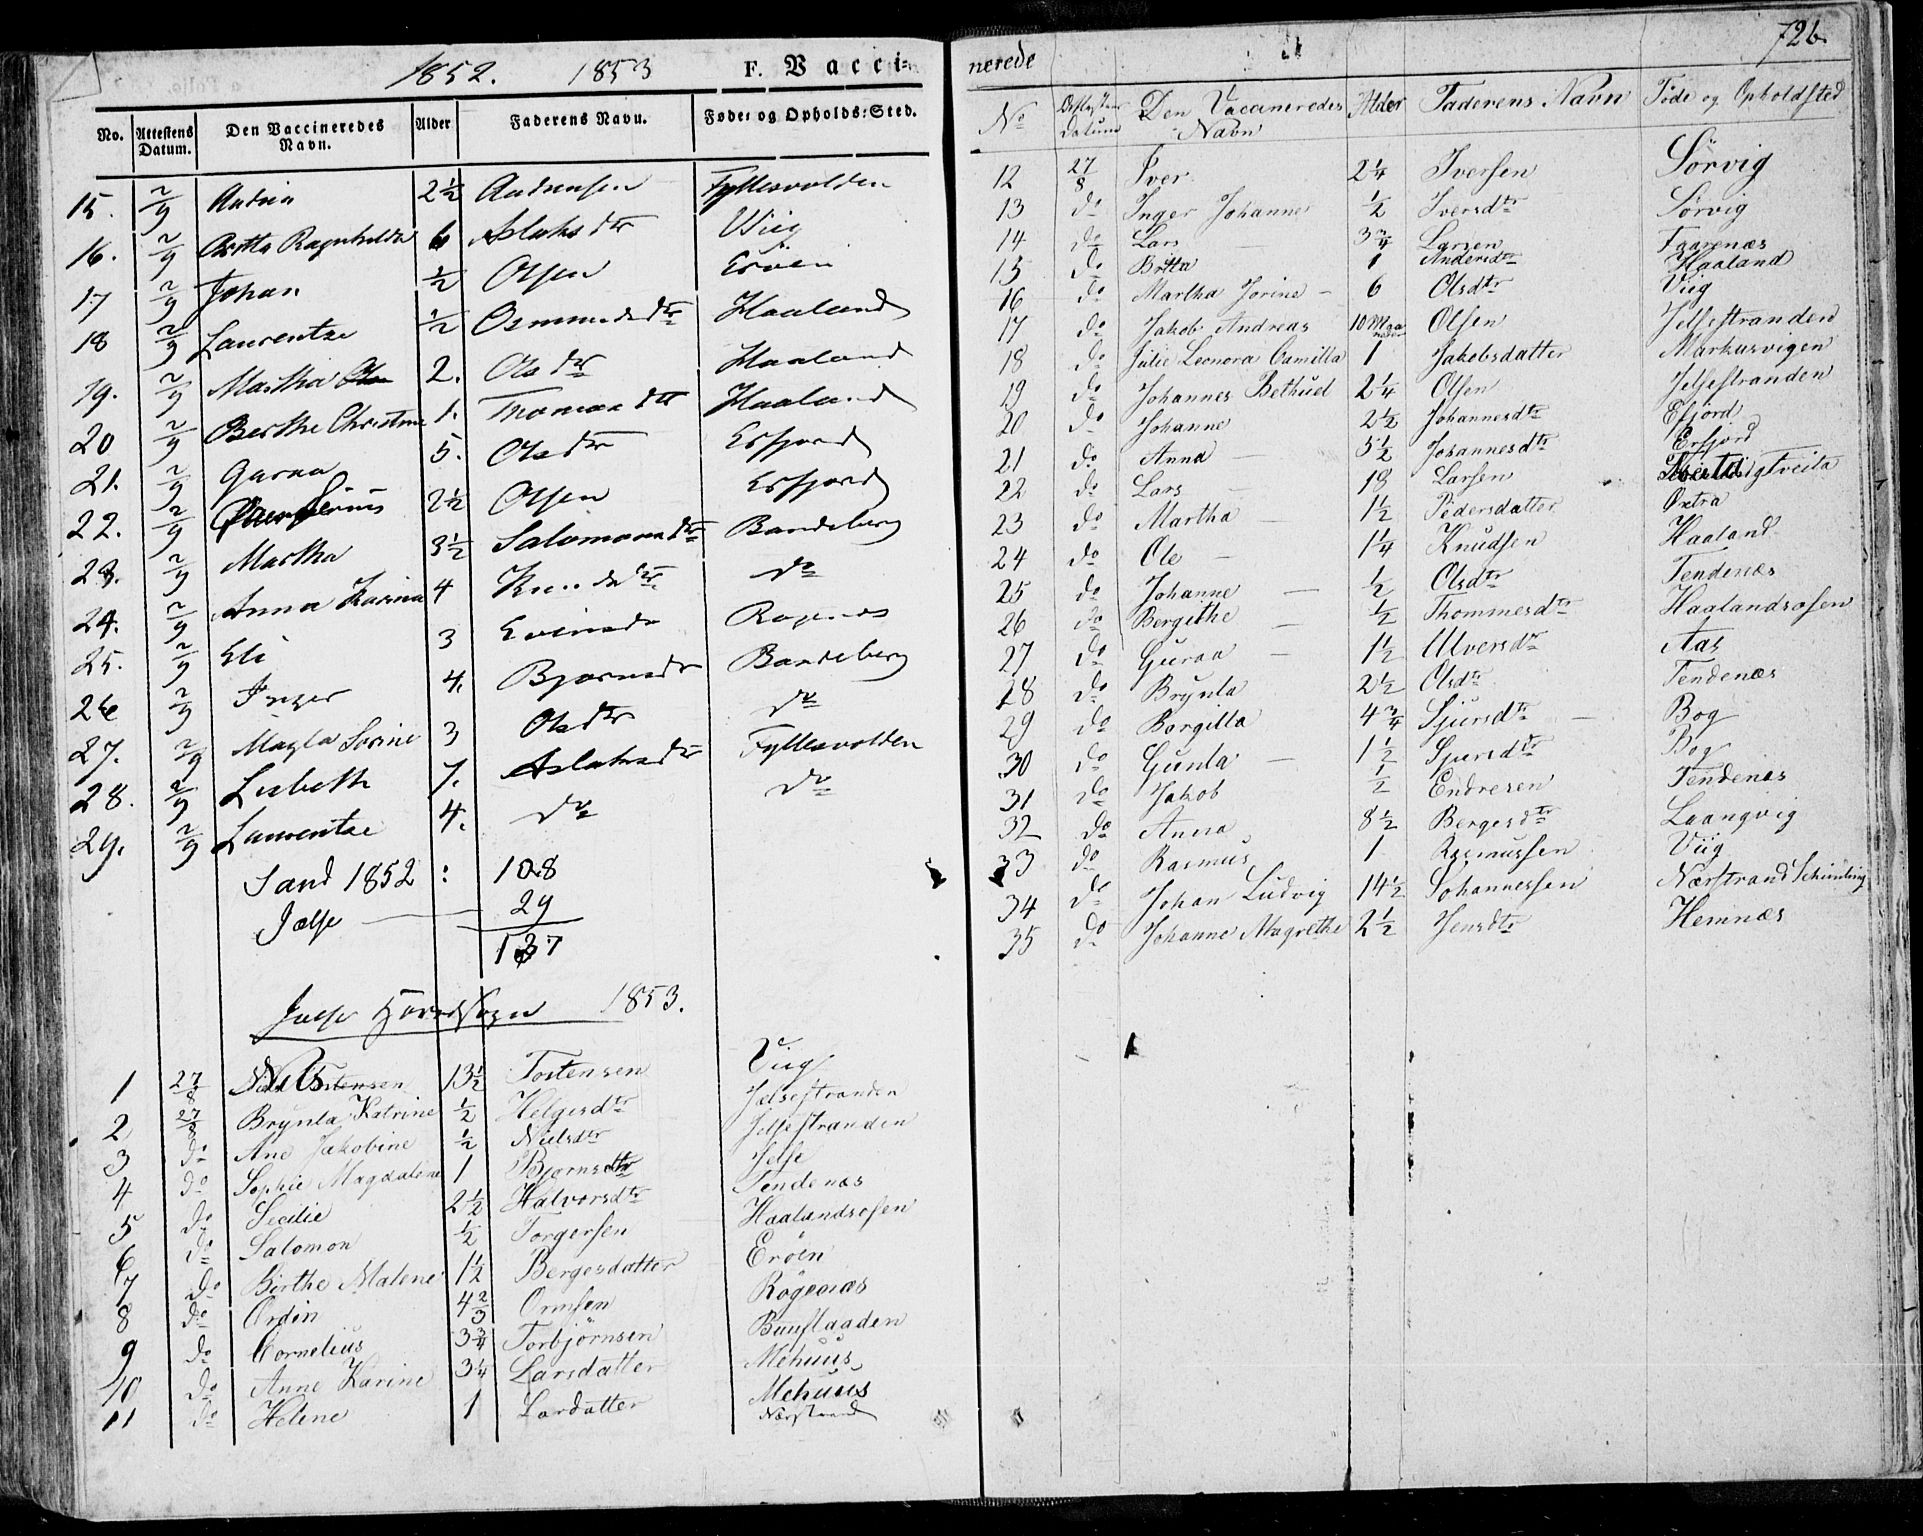 1852. 1853 F. Vacci-
No. Attestens Datum. Den Vaccineredes Navn. Alder Faderens Navn. Føde- og Opholds-Sted.
15. 2/9 2½ Andreasen Fyllesvolden
16. 2/9 Britta Ragnhilda 6 Aslaks dtr Viig
17 2/9 Johan ½ Olsen Eröen
18 2/9 Laurentze ½ Osmundsdtr Haaland
19. 2/9 Martha 2. Olsdtr Haaland
20 2/9 Berthe Christine 1. Thomasdtr Haaland
21. 2/9 Guroa 5. Olsdtr Erfjord
22. 2/9 2½ Olsen Erfjord
23. 2/9 Martha 3½ Salomonsdtr Bandeberg
24. 2/9 Anna Karina 4 Knudsdtr do
25. 2/9 Eli 3 Rogenæs
26 2/9 Inger 4. Bjørnsdtr Bandeberg
27. 2/9 Magla Sorine 3 Olsdtr do
28. 2/9 Lisbeth 7. Aslaksdtr Fyllesvolden
29. 2/9 Laurentze 4. do do
Sand 1852 : 108
Jælse 29
137
Jælse Hovedsogn 1853.
1 27/8 Nils Tostensen 13½ Tostensen Viig
2 27/8 Brynla Katrine ½ Helgesdtr Jelsestranden
3 do Ane Jakobine ½ Nielsdtr Jelsestranden
4 do Sophie Magdalene 1 Bjørnsdtr Jelse
5 do Secilie 2½ Halvorsdtr Tendenæs
6 do Salomon ½ Torgersen Haalandsosen
7 do Birthe Malene 1½ Bergesdatter Eröen
8 do Ordin 4⅔ Ormsen Rogenæs
9 do Cornelius 3¾ Torbjörnsen Buuflaaden
10 do Anne Karine 3¼ Larsdatter Mehuus
11 do Helene 1 Lardatter Mehuus
Nærstrand
726.
nerede
No Attestens Datum Den Vaccineredes Navn Alder Faderens Navn Föde og Opholdsted
12 27/8 Iver 2¼ Iversen Sörvig
13 do Inger Johanne ½ Iversdtr Sörvig
14 do Lars 3¾ Larsen Faarenæs
15 do Britta 1 Andersdtr Haaland
16 do Martha Jorine 6 Olsdtr Viig
17 do Jakob Andreas 10 Maaneder Olsen Jelsestranden
18 do Julie Leonora Camilla 1 Jakobsdatter Markusvigen
19 do Johannes Bethuel 2¼ Olsen Jelsestranden
20 do Johanne 2½ Johannesdtr Efjord
21 do Anna 5½ Johannesdtr Erfjord
22 do Lars 18 Larsen
23 do Martha 1½ Pedersdatter Oxtra
24 do Ole 1¼ Knudsen Haaland
25 do Johanne ½ Olsdtr Tendenæs
26 do Bergithe ½ Thommesdtr Haalandsosen
27 do Guroa 1½ Ulversdtr Aas
28 do Brynla 2½ Olsdtr Tendenæs
29 do Borgilla 4¾ Sjursdtr Bog
30 do Gunla 1½ Sjursdtr Bog
31 do Jakob ½ Endresen Tendenæs
32 do Anna 8½ Bergesdtr Laangvig
33 do Rasmus 1 Rasmussen Viig
34 do Johan Ludvig 14½ Johannessen Nærstrand
35 do Johanne Magrethe 2½ Jensdtr Hemnæs